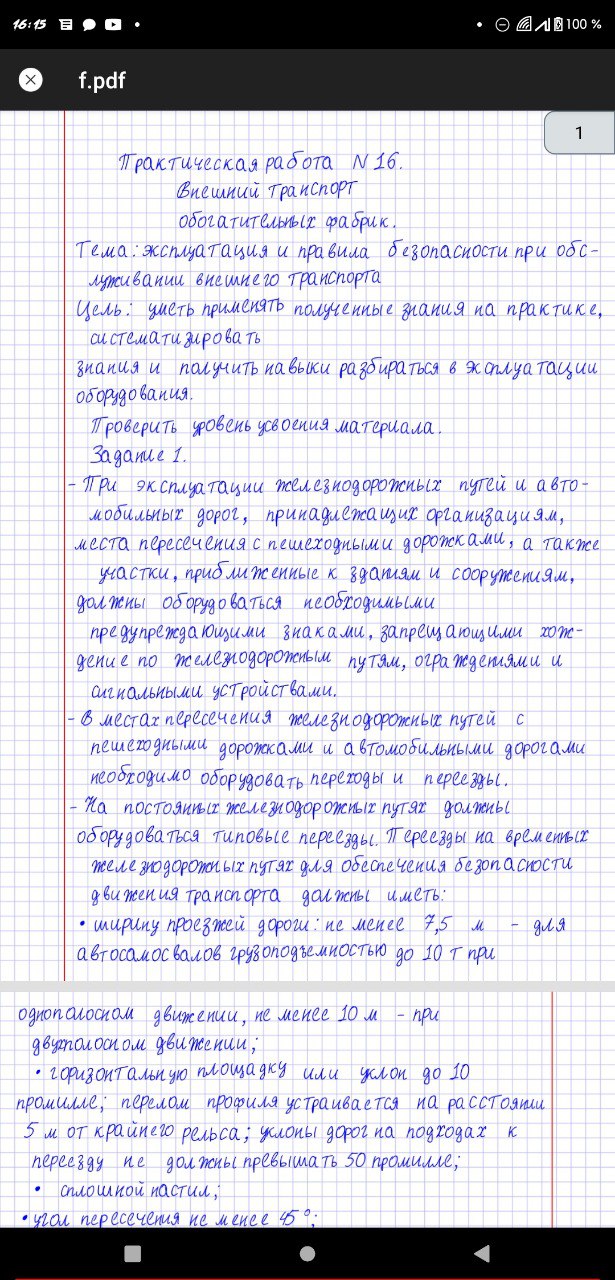 16:15
100 %
f.pdf
1
Практическая работа N 16.
Внешний транспорт
обогатительных фабрик.
Тема: эксплуатация и правила безопасности при обс-
луживании внешнего транспорта
Цель: уметь применять полученные знания на практике,
систематизировать
знания и получить навыки разбираться в эксплуатации
оборудования.
Проверить уровень усвоения материала.
Задание 1.
- При эксплуатации железнодорожных путей и авто-
мобильных дорог, принадлежащих организациям,
места пересечения с пешеходными дорожками, а также
участки, приближенные к зданиям и сооружениям,
должны оборудоваться необходимыми
предупреждающими знаками, запрещающими хож-
дение по железнодорожным путям, ограждениями и
сигнальными устройствами.
- В местах пересечения железнодорожных путей с
пешеходными дорожками и автомобильными дорогами
необходимо оборудовать переходы и переезды.
- На постоянных железнодорожных путях должны
оборудоваться типовые переезды. Переезды на временных
железнодорожных путях для обеспечения безопасности
движения транспорта должны иметь:
• ширину проезжей дороги: не менее 7,5 м - для
автосамосвалов грузоподъемностью до 10 т при
однополосном движении, не менее 10 м - при
двухполосном движении;
• горизонтальную площадку или уклон до 10
промилле; перелом профиля устраивается на расстоянии
5 м от крайнего рельса; уклоны дорог на подходах к
переезду не должны превышать 50 промилле;
• сплошной настил;
• угол пересечения не менее 45°;